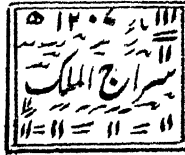 ۱۲۰۴
سراج الملک